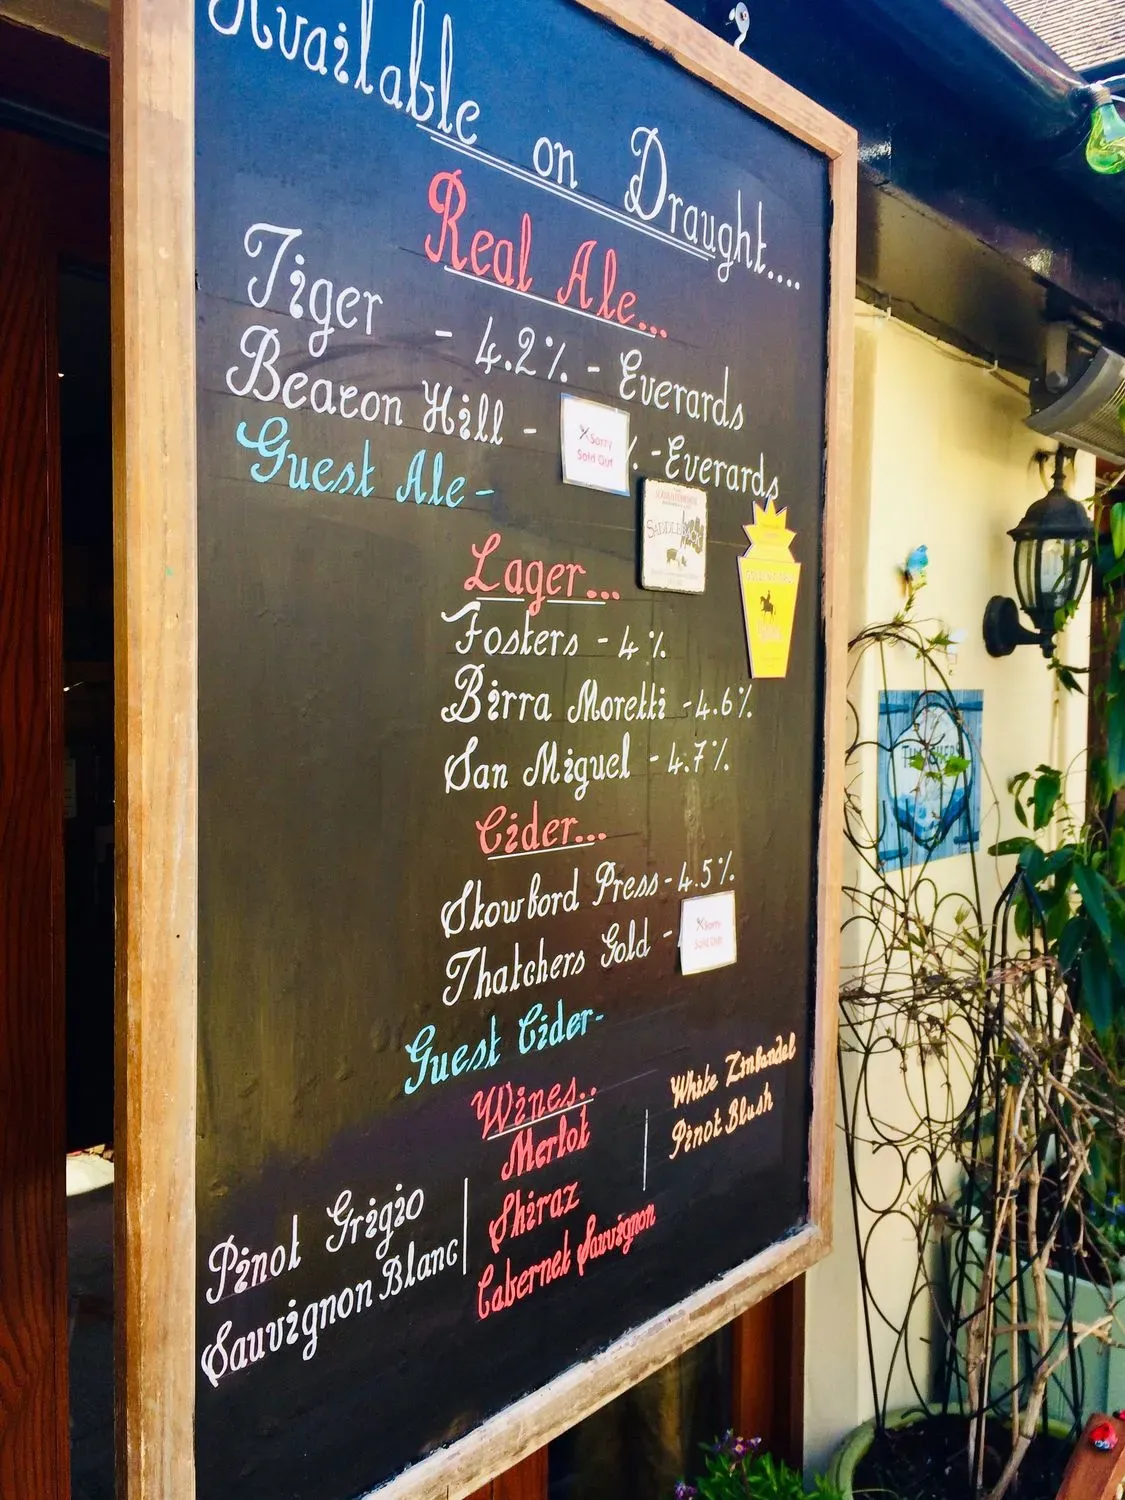 Available on Draught....
Real Ale...
Tiger - 4.2% - Everards
Beacon Hill - % - Everards
Sorry
Sold Out
Guest Ale -
SADDLEBACK
Lager...
Fosters - 4%
Birra Moretti - 4.6%
San Miguel - 4.7%
Cider...
Stowford Press - 4.5%
Thatchers Gold -
Sorry
Sold Out
Guest Cider -
Wines..
Merlot
Shiraz
Cabernet Sauvignon
Pinot Grigio
Sauvignon Blanc
White Zinfandel
Pinot Blush